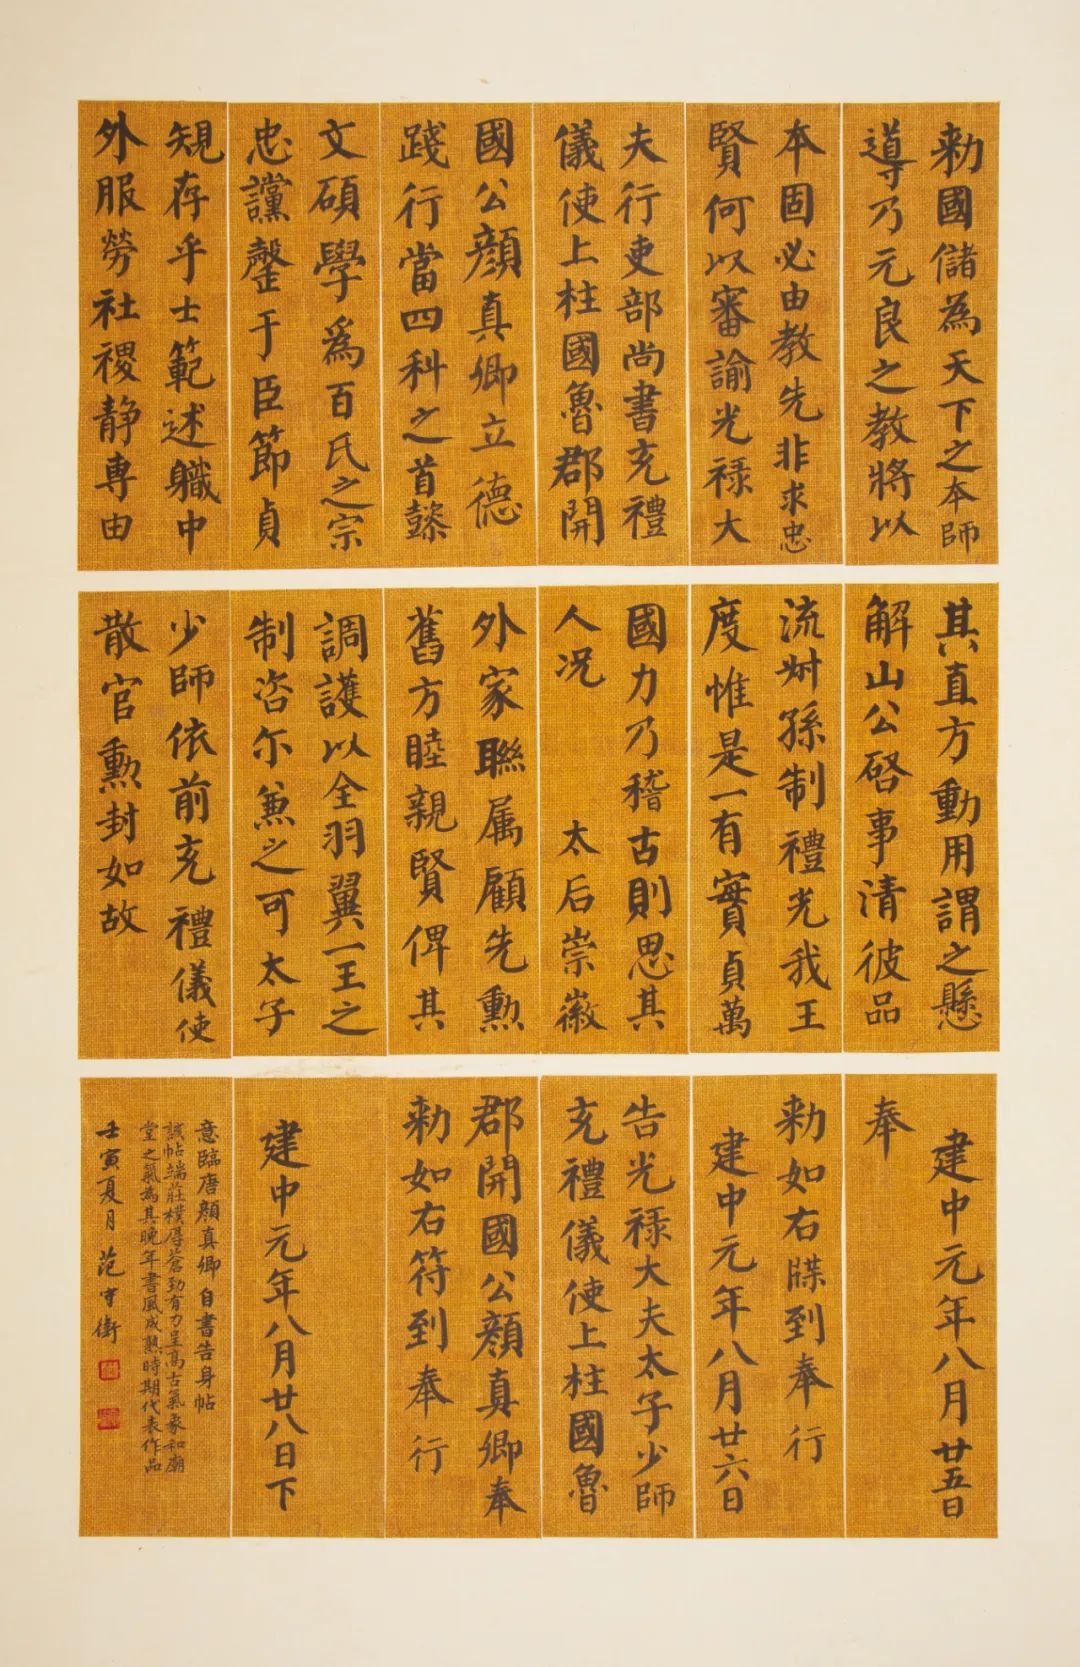 勑國儲為天下之本師
導乃元良之教將以
本固必由教先非求忠
賢何以審諭光禄大
夫行吏部尚書充禮
儀使上柱國魯郡開
國公顏真卿立德
踐行當四科之首懿
文碩學為百氏之宗
忠讜罄于臣節貞
規存乎士範述職中
外服勞社稷静専由
其直方動用謂之懸
解山公啓事清彼品
流叔孫制禮光我王
度惟是一有實貞萬
國力乃稽古則思其
人況 太后崇徽
外家聯属顧先勲
舊方睦親賢俾其
調護以全羽翼一王之
制咨尓兼之可太子
少師依前充禮儀使
散官勲封如故
建中元年八月廿五日
奉
勑如右牒到奉行
建中元年八月廿六日
告光禄大夫太子少師
充禮儀使上柱國魯
郡開國公顏真卿奉
勑如右符到奉行
建中元年八月廿八日下
意臨唐顏真卿自書告身帖
該帖端莊樸厚蒼勁有力呈高古氣象和廟
堂之氣為其晚年書風成熟時期代表作品
壬寅夏月范守衛